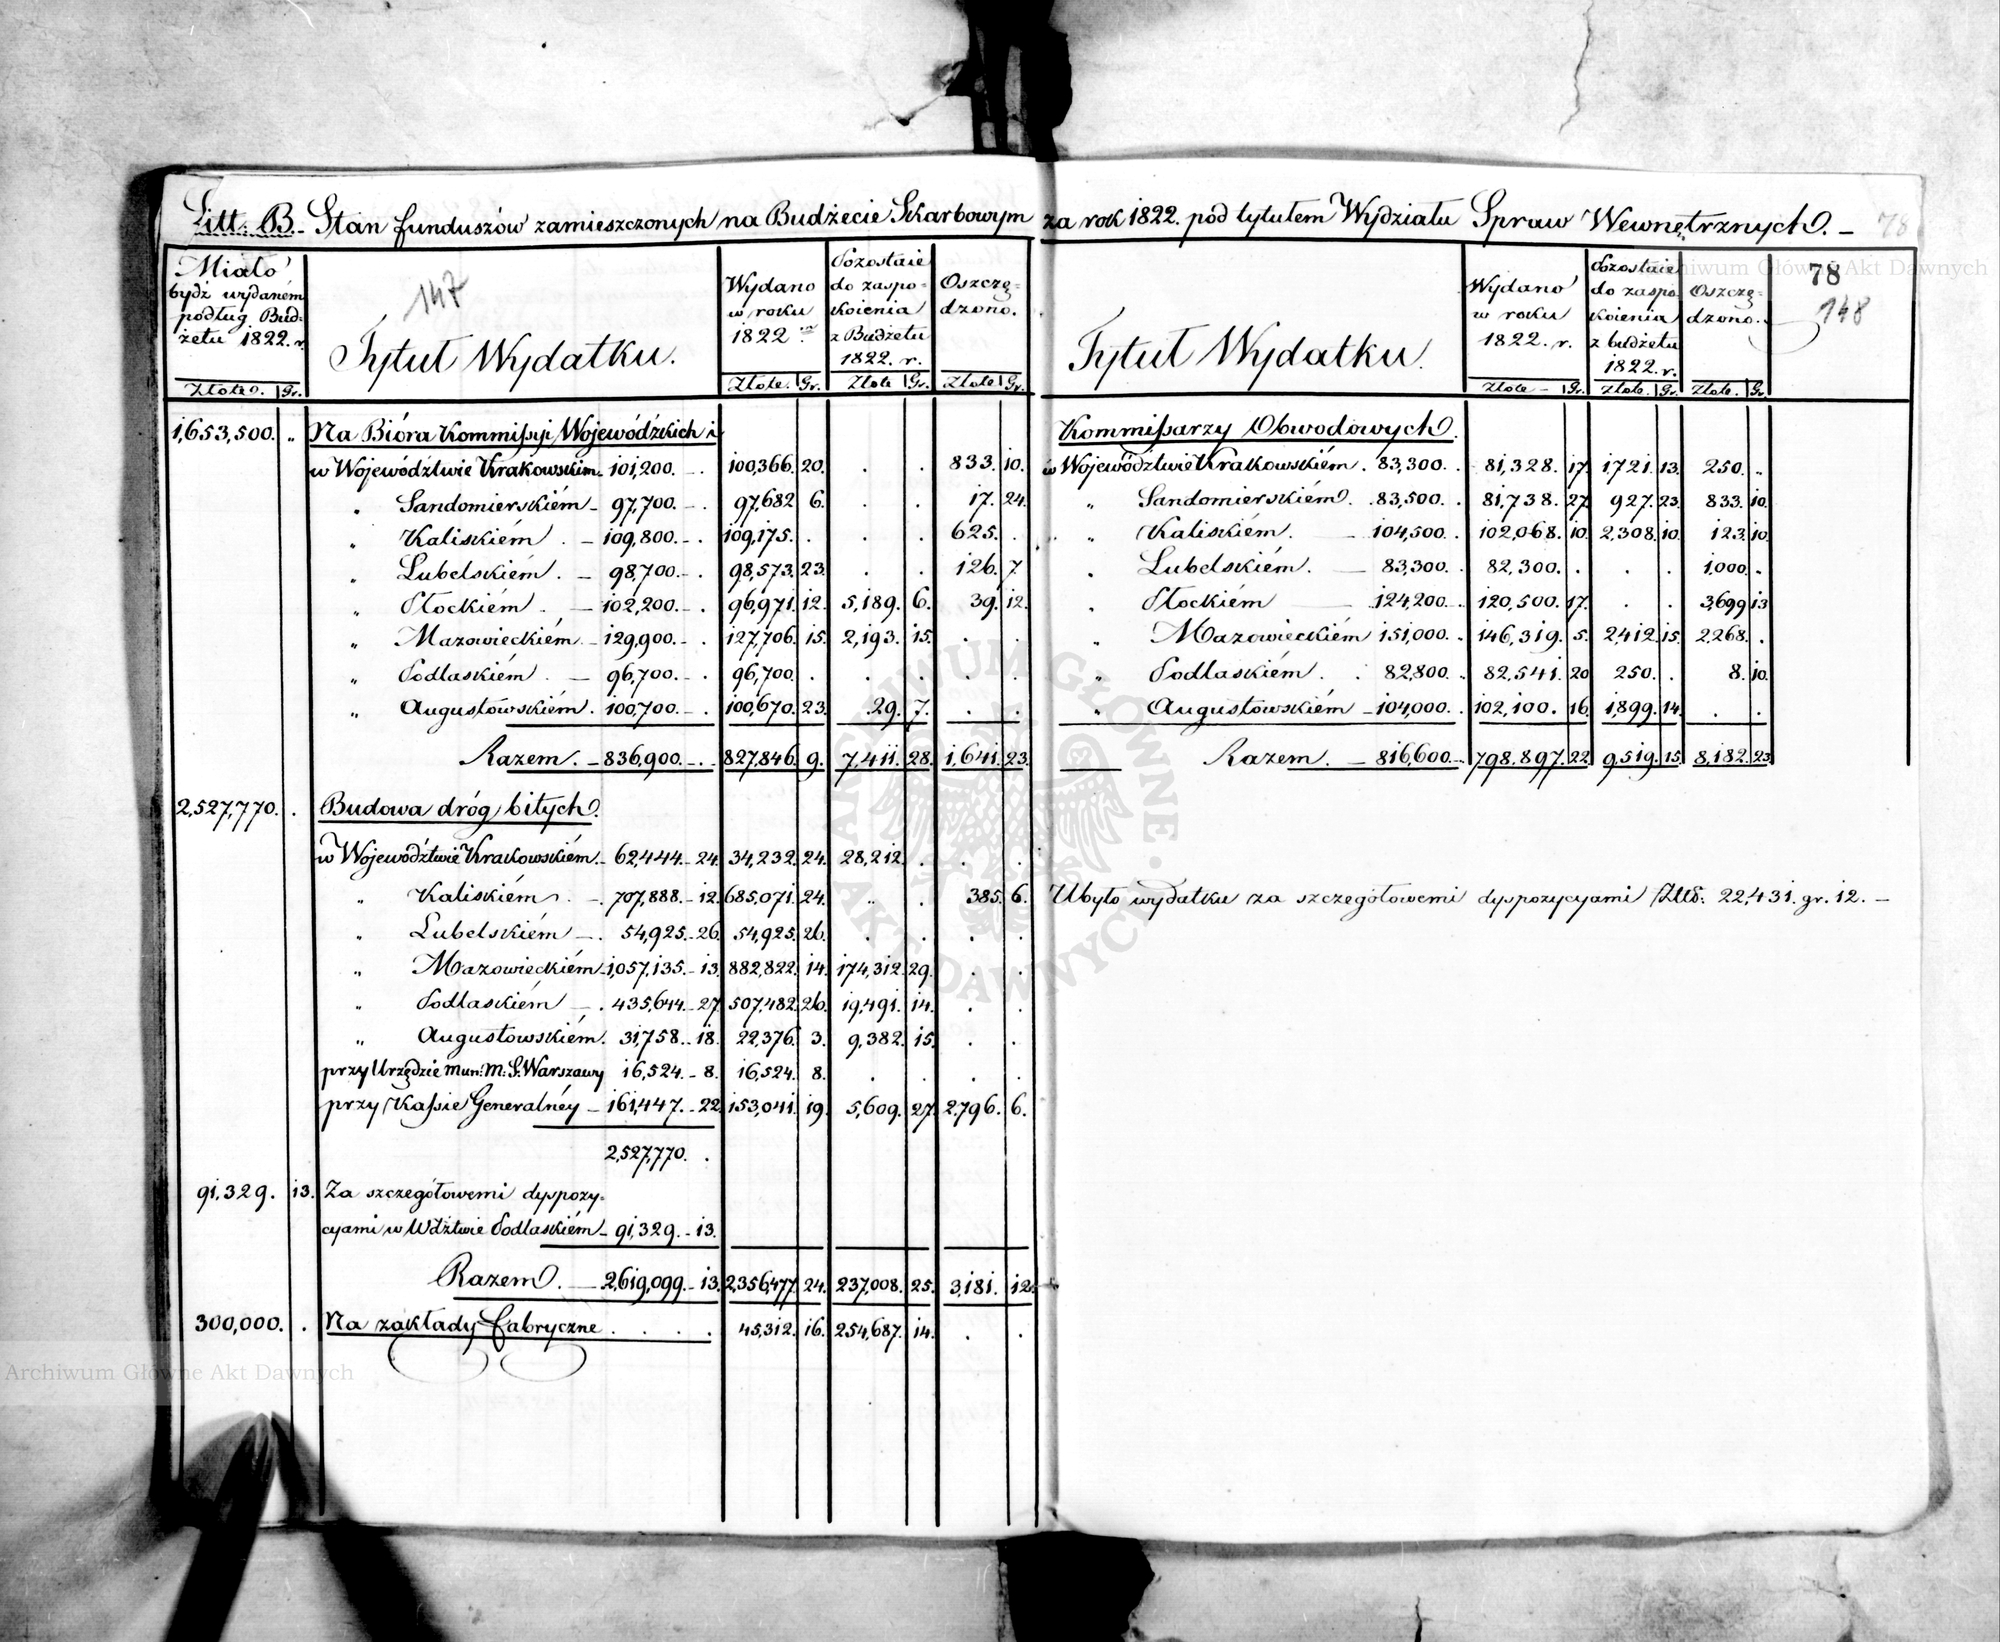 Litt. B. Stan funduszów zamieszczonych na Budżecie Skarbowym za rok 1822. pod tytułem Wydziału Spraw Wewnętrznych. –
78
Miało bydź wydaném podług Budżetu 1822. r.
147
Tytuł Wydatku.
Wydano w roku 1822
Pozostaie do zaspokoienia z Budżetu 1822. r.
Oszczędzono.
Złote. Gr.
Złote. Gr.
Złote Gr.
Złote Gr.
1,653,500. „ Na Bióra Kommissyi Wojewódzkich i
w Województwie Krakowskim 101,200. – . 100,366. 20. . . 833. 10.
„ Sandomierskiém – 97,700. – . 97,682 6. . . 17. 24.
„ Kaliskiém . – 109,800. – . 109,175. . . . 625. .
„ Lubelskiém . – 98,700. – . 98,573. 23. . . 126. 7
„ Płockiém . – 102,200. – . 96,971. 12. 5,189. 6. 39. 12.
„ Mazowieckiém – 129,900. – . 127,706. 15. 2,193. 15. . .
„ Podlaskiém . – 96,700. – . 96,700. . . . . .
„ Augustowskiém . 100,700. – . 100,670. 23. 29. 7. . .
Razem . – 836,900. – . 827,846. 9. 7,411. 28. 1,641. 23.
2,527,770. . Budowa dróg bitych.
w Województwie Krakowskiém. – 62,444. – 24. 34,232. 24. 28,212. . . .
„ Kaliskiém . – . 707,888. – 12. 685,071. 24. „ . 385. 6.
„ Lubelskiém – . 54,925. – 26. 54,925. 26. . . . .
„ Mazowieckiém – 1,057,135. – 13. 882,822. 14. 174,312. 29. . .
„ Podlaskiém – . 435,644. – 27. 507,482. 26. 19,491. 14. . .
„ Augustowskiém . 31,758. – 18. 22,376. 3. 9,382. 15. . .
przy Urzędzie Mun: M. S. Warszawy 16,524. – 8. 16,524. 8. . . . .
przy Kassie Generalnéy – 161,447. – 22. 153,041. 19. 5,609. 27. 2,796. 6.
2,527,770. .
91,329. 13. Za szczegółowemi dyspozy=
cyami w Wdztwie Podlaskiém – 91,329. – 13.
Razem . – 2,619,099. – 13. 2,356,477. 24. 237,008. 25. 3,181. 12.
300,000. . Na zakłady fabryczne . . . . 45,312. 16. 254,687. 14. . .
Tytuł Wydatku.
Wydano w roku 1822. r.
Pozostaie do zaspokoienia z budżetu 1822. r.
Oszczędzono.
78
148
Złote – Gr.
Złote. Gr.
Złote. Gr
Kommissarzy Obwodowych.
w Województwie Krakowskiém . 83,300. . 81,328. 17. 1721. 13. 250. „
„ Sandomierskiém . 83,500. . 81,738. 27. 927. 23. 833. 10.
„ Kaliskiém . – 104,500. . 102,068. 10. 2,308. 10. 123. 10.
„ Lubelskiém . – 83,300. . 82,300. . . . 1,000. „
„ Płockiém – 124,200. . 120,500. 17. . . 3,699 13
„ Mazowieckiém 151,000. . 146,319. 5. 2,412. 15. 2,268. .
„ Podlaskiém . . 82,800. . 82,541. 20 250. . 8. 10.
„ Augustowskiém – 104,000. . 102,100. 16. 1,899. 14. . .
Razem . – 816,600. . 798,897. 22 9,519. 15. 8,182. 23
Ubyło wydatku za szczegółowemi dyspozycyami Złt. 22,431. gr. 12. –
Archiwum Główne Akt Dawnych
ARCHIWUM GŁÓWNE AKT DAWNYCH
Archiwum Główne Akt Dawnych